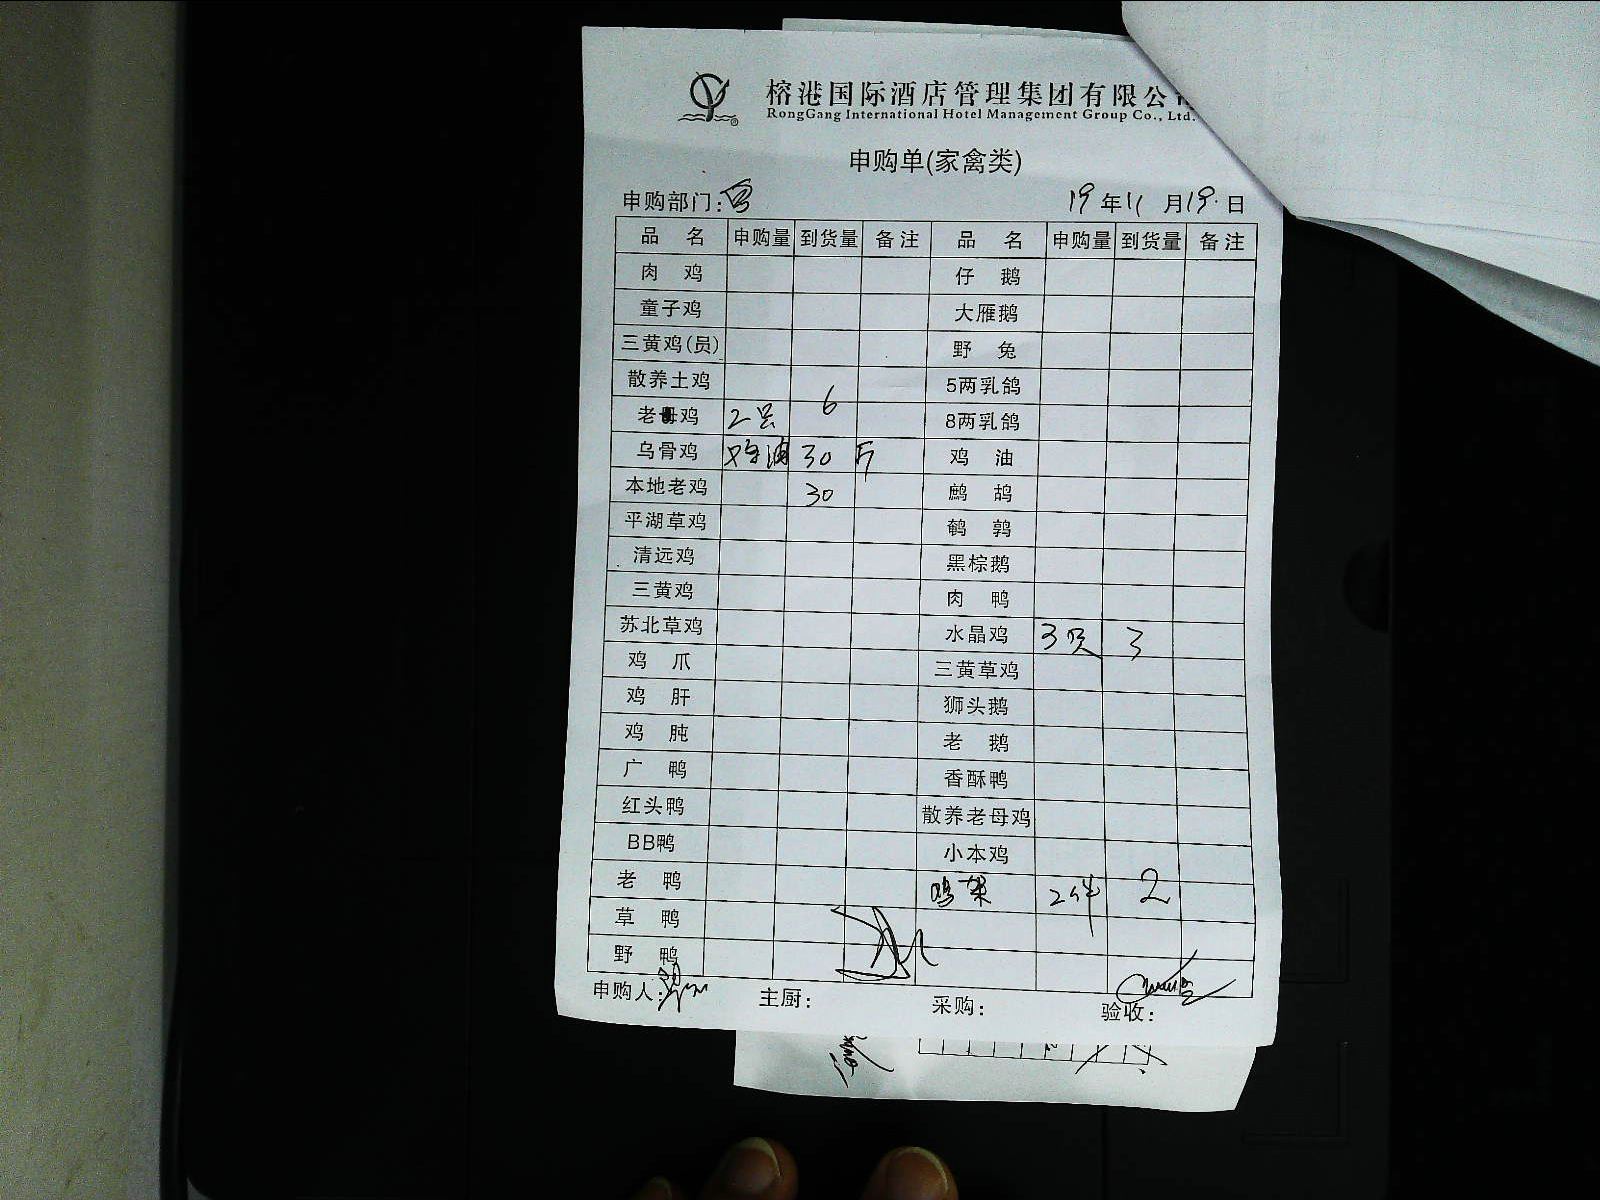 榕港国际酒店管理集团有限公
RongGang International Hotel Management Group Co., Ltd.
申购单(家禽类)
申购部门: 19年11月19日
品名 申购量 到货量 备注 品名 申购量 到货量 备注
肉鸡 仔鹅
童子鸡 大雁鹅
三黄鸡(员) 野兔
散养土鸡 5两乳鸽
老母鸡 2只 6 8两乳鸽
乌骨鸡 鸡油 30 斤 鸡油
本地老鸡 30 鹧鸪
平湖草鸡 鹌鹑
清远鸡 黑棕鹅
三黄鸡 肉鸭
苏北草鸡 水晶鸡 3只 3
鸡爪 三黄草鸡
鸡肝 狮头鹅
鸡肫 老鹅
广鸭 香酥鸭
红头鸭 散养老母鸡
BB鸭 小本鸡
老鸭 鸡架 2件 2
草鸭
野鸭
申购人: 主厨: 采购: 验收: